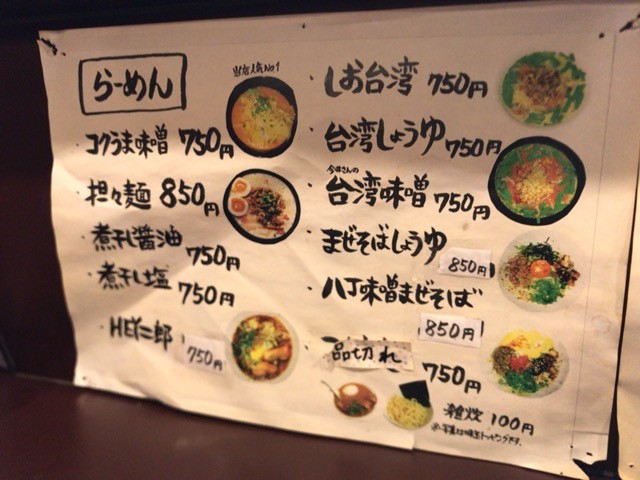 らーめん
当店人気No1
・コクうま味噌 750円
・担々麺 850円
・煮干し醤油 750円
・煮干し塩 750円
・HEY二郎 750円
・しお台湾 750円
・台湾しょうゆ 750円
今井さんの
・台湾味噌 750円
・まぜそばしょうゆ 850円
・八丁味噌まぜそば 850円
・品切れ 750円
雑炊 100円